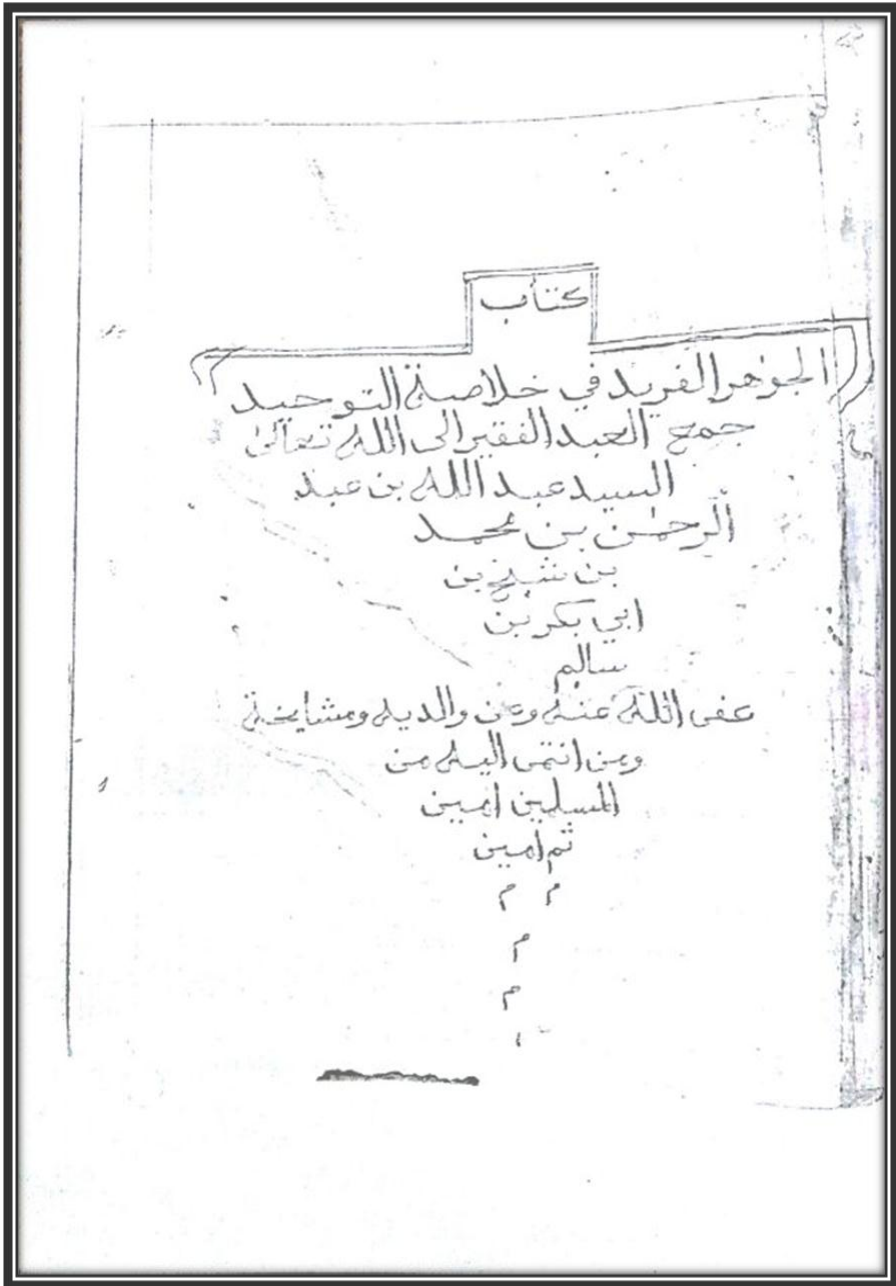 كتاب
الجوهر الفريد في خلاصة التوحيد
جمع العبد الفقير الى الله تعالى
السيد عبد الله بن عبد
الرحمٰن بن محمد
بن شيخ بن
ابي بكر بن
سالم
عفى الله عنه وعن والديه ومشايخه
ومن انتمى اليه من
المسلمين امين
ثم امين
م م
م
م